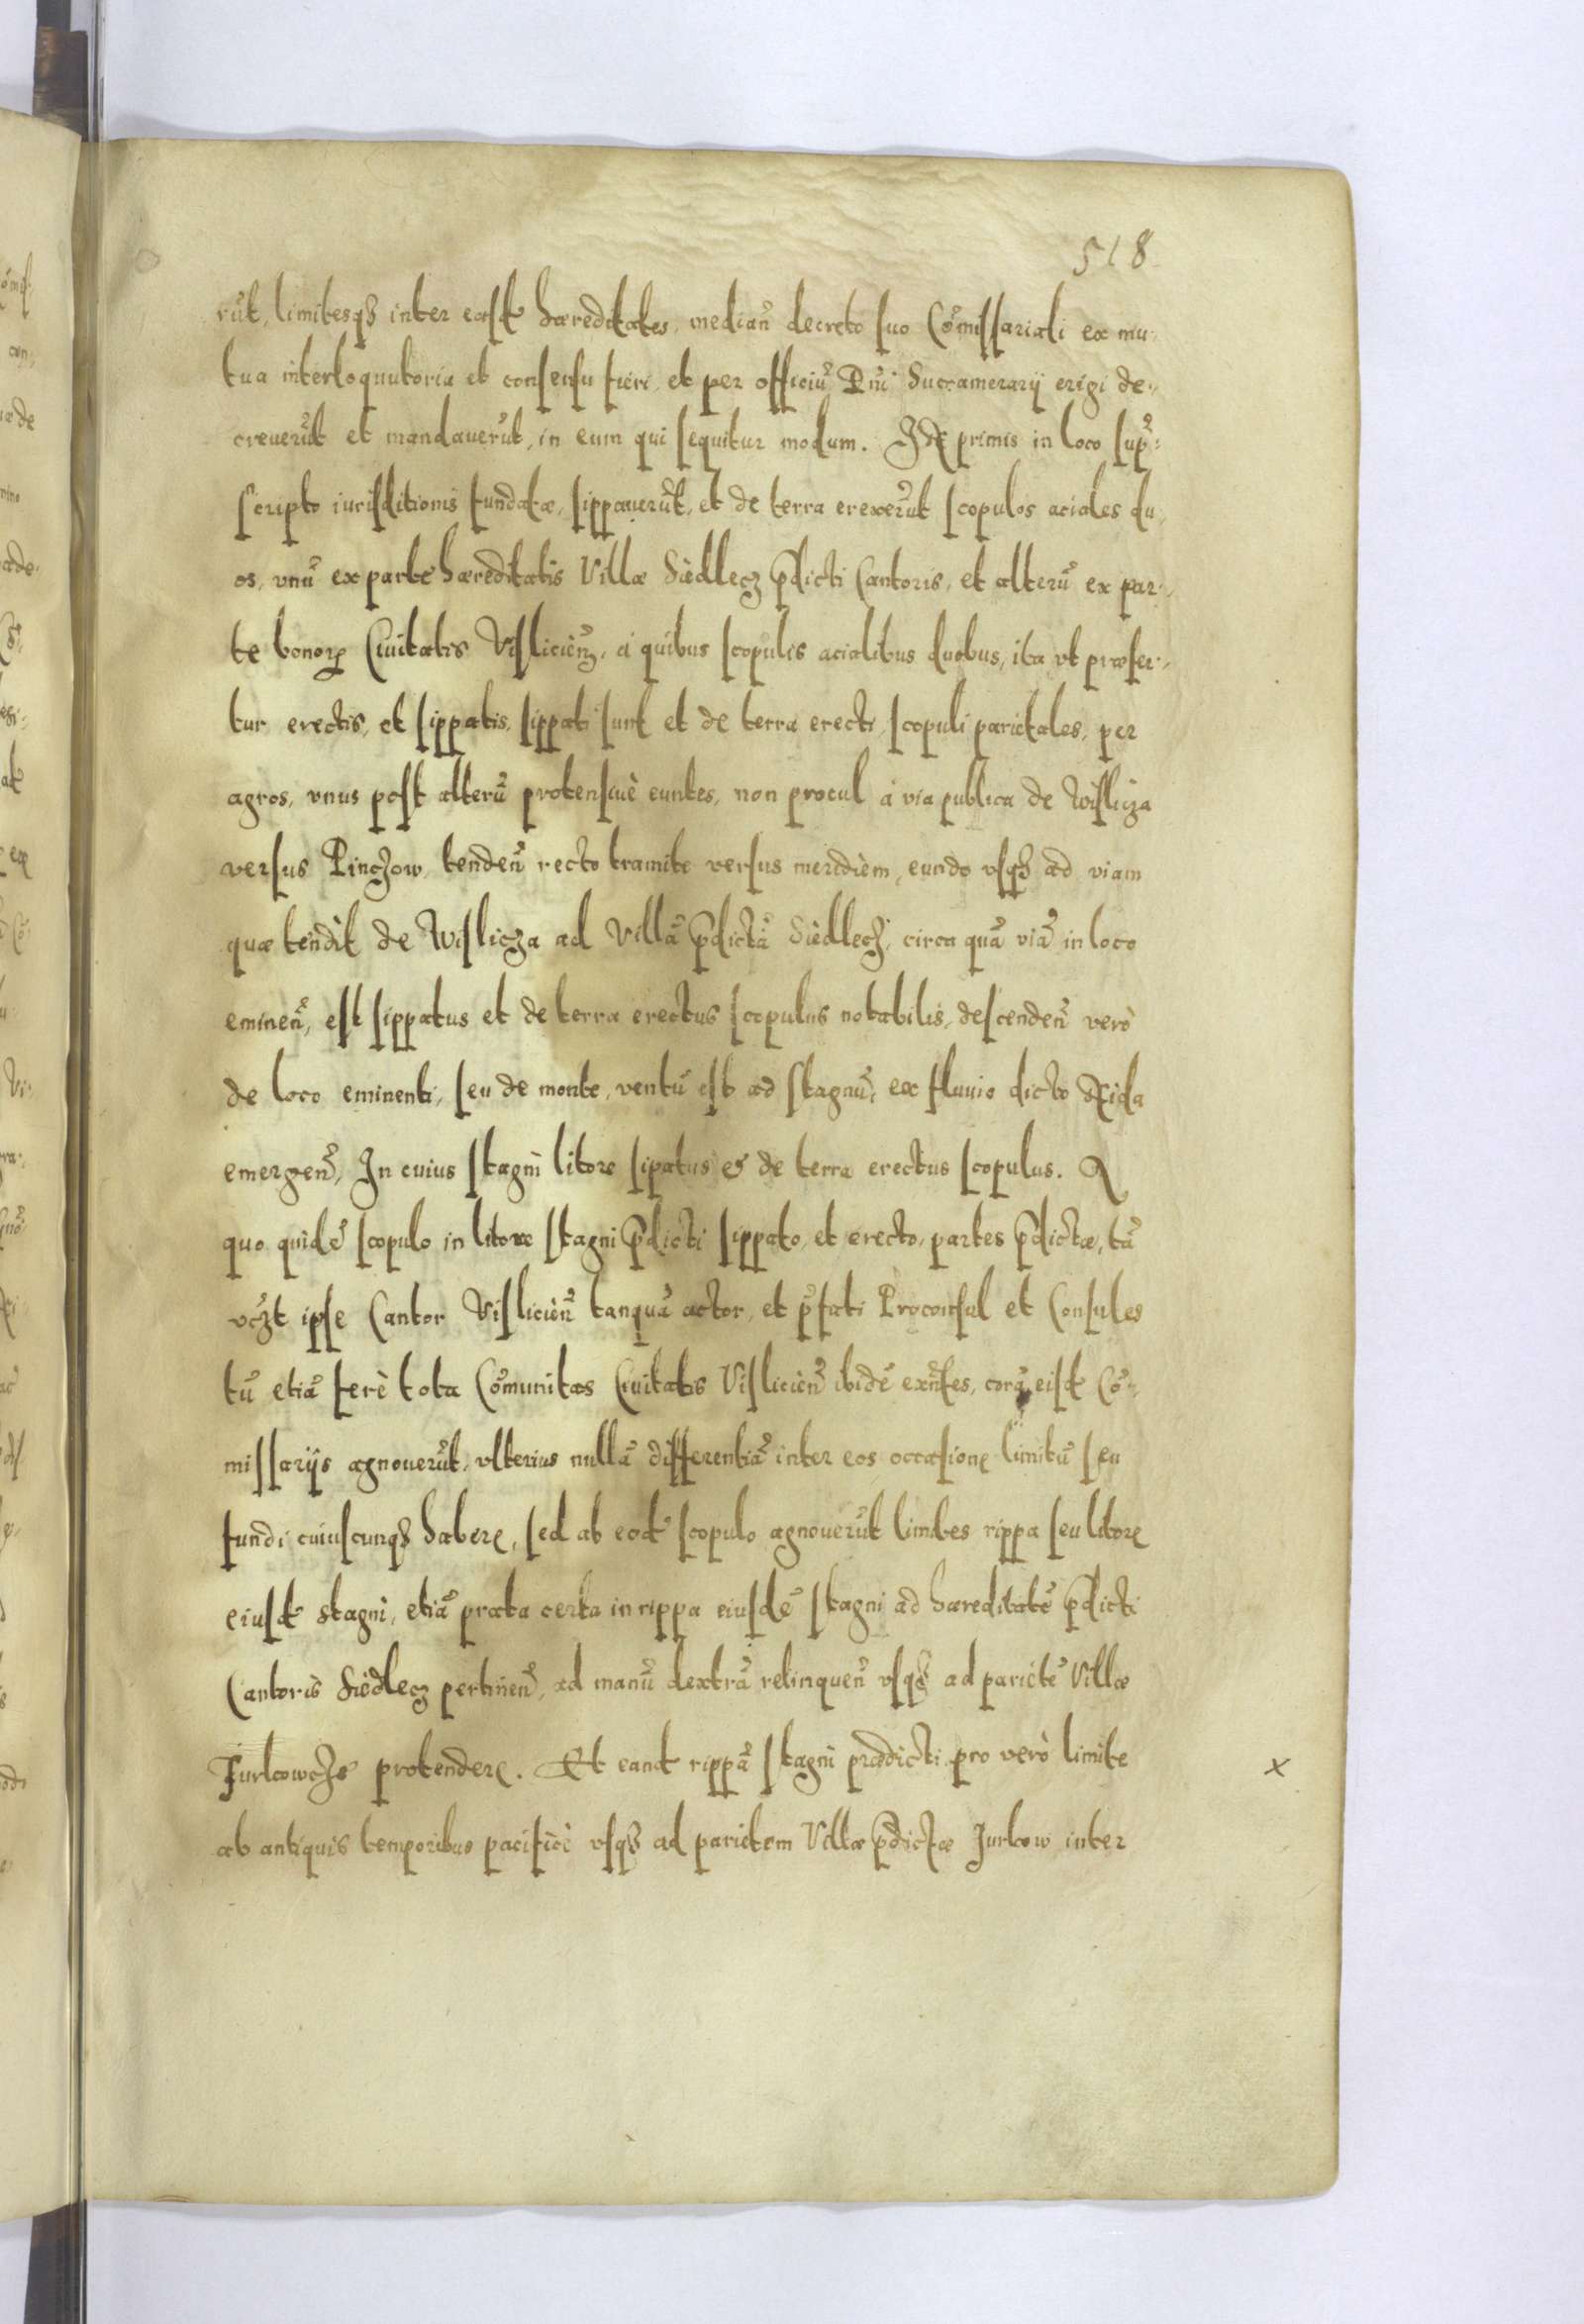 518
rūt, limitesq₃ inter easd̃ hæreditates, median̄ decreto suo Cōmissariali ex mu-
tua interloquutoria et consensu fieri, et per officiū Dn̄i Succamerarij erigi de-
creuerūt et mandauerūt, in eum qui sequitur modum. primis in loco sup̄-
scripto iurisditionis fundatæ, sippauerūt, et de terra erexerūt scopulos aciales du-
os, vnū ex parte hæreditatis Villæ Siedlecz p̄dicti Cantoris, et alterū ex par-
te bonoꝝ Ciuitatis Vislicień, à quibus scopulis acialibus duobus, ita vt præfer-
tur erectis, et sippatis, sippati sunt et de terra erecti scopuli parietales, per
agros, vnus post alterū protensiuè euntes, non procul à via publica de Wislicza
versus Pinczow, tenden̄ recto tramite versus meridièm, eundo vsq₃ ad viam
quæ tendit de Wislicza ad Villā p̄dictā Siedlecz, circa quā viā in loco
eminen̄, est sippatus et de terra erectus scopulus notabilis, descenden̄ verò
de loco eminenti, seu de monte, ventū est ad stagnū, ex fluuio dicto Nida
emergen̄, In cuius stagni litore sipatus & de terra erectus scopulus. A
quo quidē scopulo in litore stagni p̄dicti sippato, et erecto, partes p̄dictæ, tā
vcz̄t ipse Cantor Vislicień tanquā actor, et p̄fati Proconsul et Consules
tū etiā ferè tota Cōmunitas Ciuitatis Vislicień ibidē exn̄tes, corā eisd̃ Cō-
missarijs agnouerūt, vlterius nullā differentiā inter eos occasione limitū seu
fundi cuiuscunq₃ habere, sed ab eod̃ scopulo agnouerūt limites rippa seu litore
eiusd̃ stagni, etiā prata certa in rippa eiusdē stagni ad hæreditatē p̄dicti
Cantoris Siedlecz pertinen̄, ad manū dextrā relinquen̄ vsq₃ ad parietē Villæ
Jurkowcze protendere. Et eand̃ rippā stagni prædicti pro verò limite x
ab antiquis temporibus pacificè vsq₃ ad parietem Villæ p̄dictæ Jurkow inter